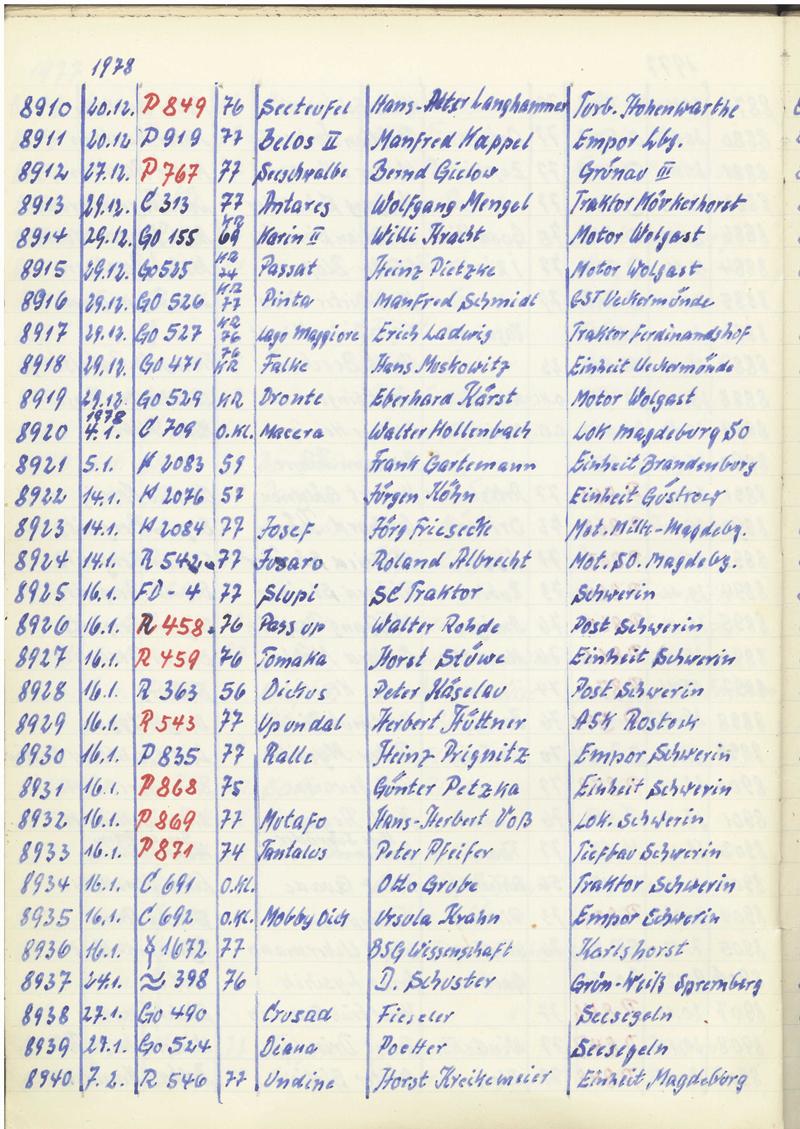 1978
8910 20.12. P 849 76 Seeteufel Hans- Langhammer Turb. Hohenwarthe
8911 20.12. P 919 77 Belos II Manfred Happel Empor Lbg.
8912 27.12. P 767 77 Seeschwalbe Bernd Gielow Grünau III
8913 29.12. C 313 77 Antares Wolfgang Mengel Traktor Mörkerhorst
8914 29.12. GO 155 KR 69 Karin II Willi Kracht Motor Wolgast
8915 29.12. Go 525 KR 74 Passat Heinz Pietzke Motor Wolgast
8916 29.12. GO 526 KR 77 Pinta Manfred Schmidt GST Ueckermünde
8917 29.12. GO 527 KR 76 Lago Maggiore Erich Ladwig Traktor Ferdinandshof
8918 29.12. Go 471 76 KR Falke Hans Moskowitz Einheit Ueckermünde
8919 29.12. GO 529 KR Dronte Eberhard Kärst Motor Wolgast
1978
8920 4.1. C 709 O.Kl. Macera Walter Hollenbach Lok Magdeburg SO
8921 5.1. H 2083 59 Frank Gartemann Einheit Brandenburg
8922 14.1. H 2076 57 Jürgen Höhn Einheit Güstrow
8923 14.1. H 2084 77 Josef Jörg Friesecke Mot. Mitte-Magdebg.
8924 14.1. R 542 77 Jusaro Roland Albrecht Mot. SO. Magdebg.
8925 16.1. FD - 4 77 Slupi SC Traktor Schwerin
8926 16.1. R 458 76 Pass up Walter Rohde Post Schwerin
8927 16.1. R 459 76 Tomaka Horst Stüwe Einheit Schwerin
8928 16.1. R 363 56 Peter Häselau Post Schwerin
8929 16.1. R 543 77 Upundal Herbert Hüttner ASK Rostock
8930 16.1. P 835 77 Ralle Heinz Prignitz Empor Schwerin
8931 16.1. P 868 75 Günter Petzka Einheit Schwerin
8932 16.1. P 869 77 Mutafo Hans-Herbert Voß Lok. Schwerin
8933 16.1. P 871 74 Tantalus Peter Pfeifer Tiefbau Schwerin
8934 16.1. C 691 O.Kl. Otto Grube Traktor Schwerin
8935 16.1. C 692 O.Kl. Mobby Dich Ursula Krahn Empor Schwerin
8936 16.1. 1672 77 BSG Wissenschaft Karlshorst
8937 24.1. 398 76 D. Schuster Grün-Weiß Spremberg
8938 27.1. Go 490 Crusad Fieseler Seesegeln
8939 27.1. Go 524 Diana Poetter Seesegeln
8940 7.2. R 546 77 Undine Horst Kreikemeier Einheit Magdeburg